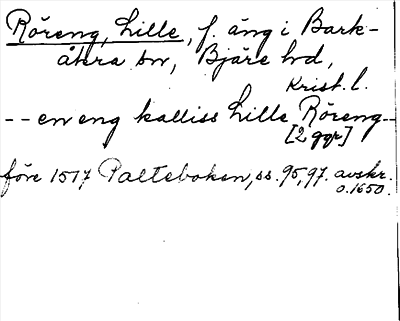 Röreng, Lille, f. äng i Bark-
åkra sn, Bjäre hd,
Krist. l.
-- en eng kalliss Lille Röreng--
[2 ggr]
före 1517 Palteboken, ss. 95, 97. avskr.
o. 1650.